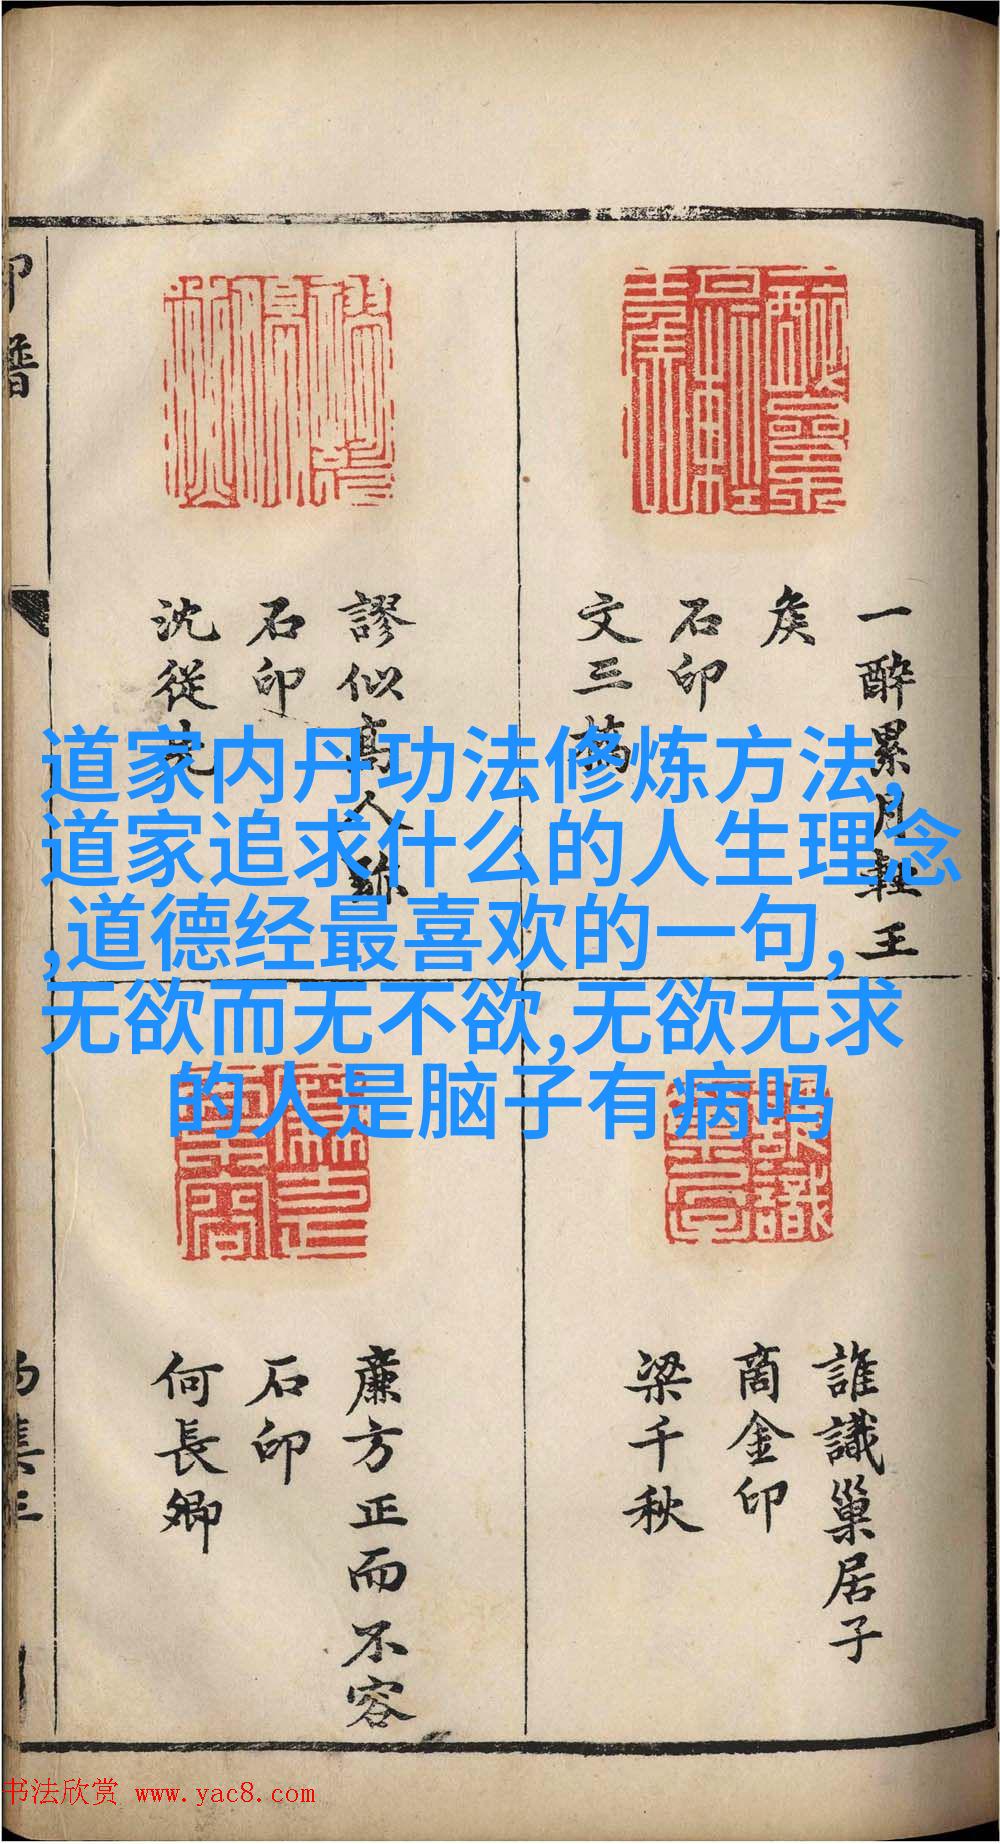 道家内丹功法修炼方法,
道家追求什么的人生理念
,道德经最喜欢的一句,
无欲而无不欲,无欲无求
的人是脑子有病吗
一醉累月軽王
矦
石印
文三橋
謬似高人跡
石印
沈從先
誰識巢居子
商金印
梁千秋
廉方正而不容
石印
何長卿
印譜
书法欣赏 www.yac8.com